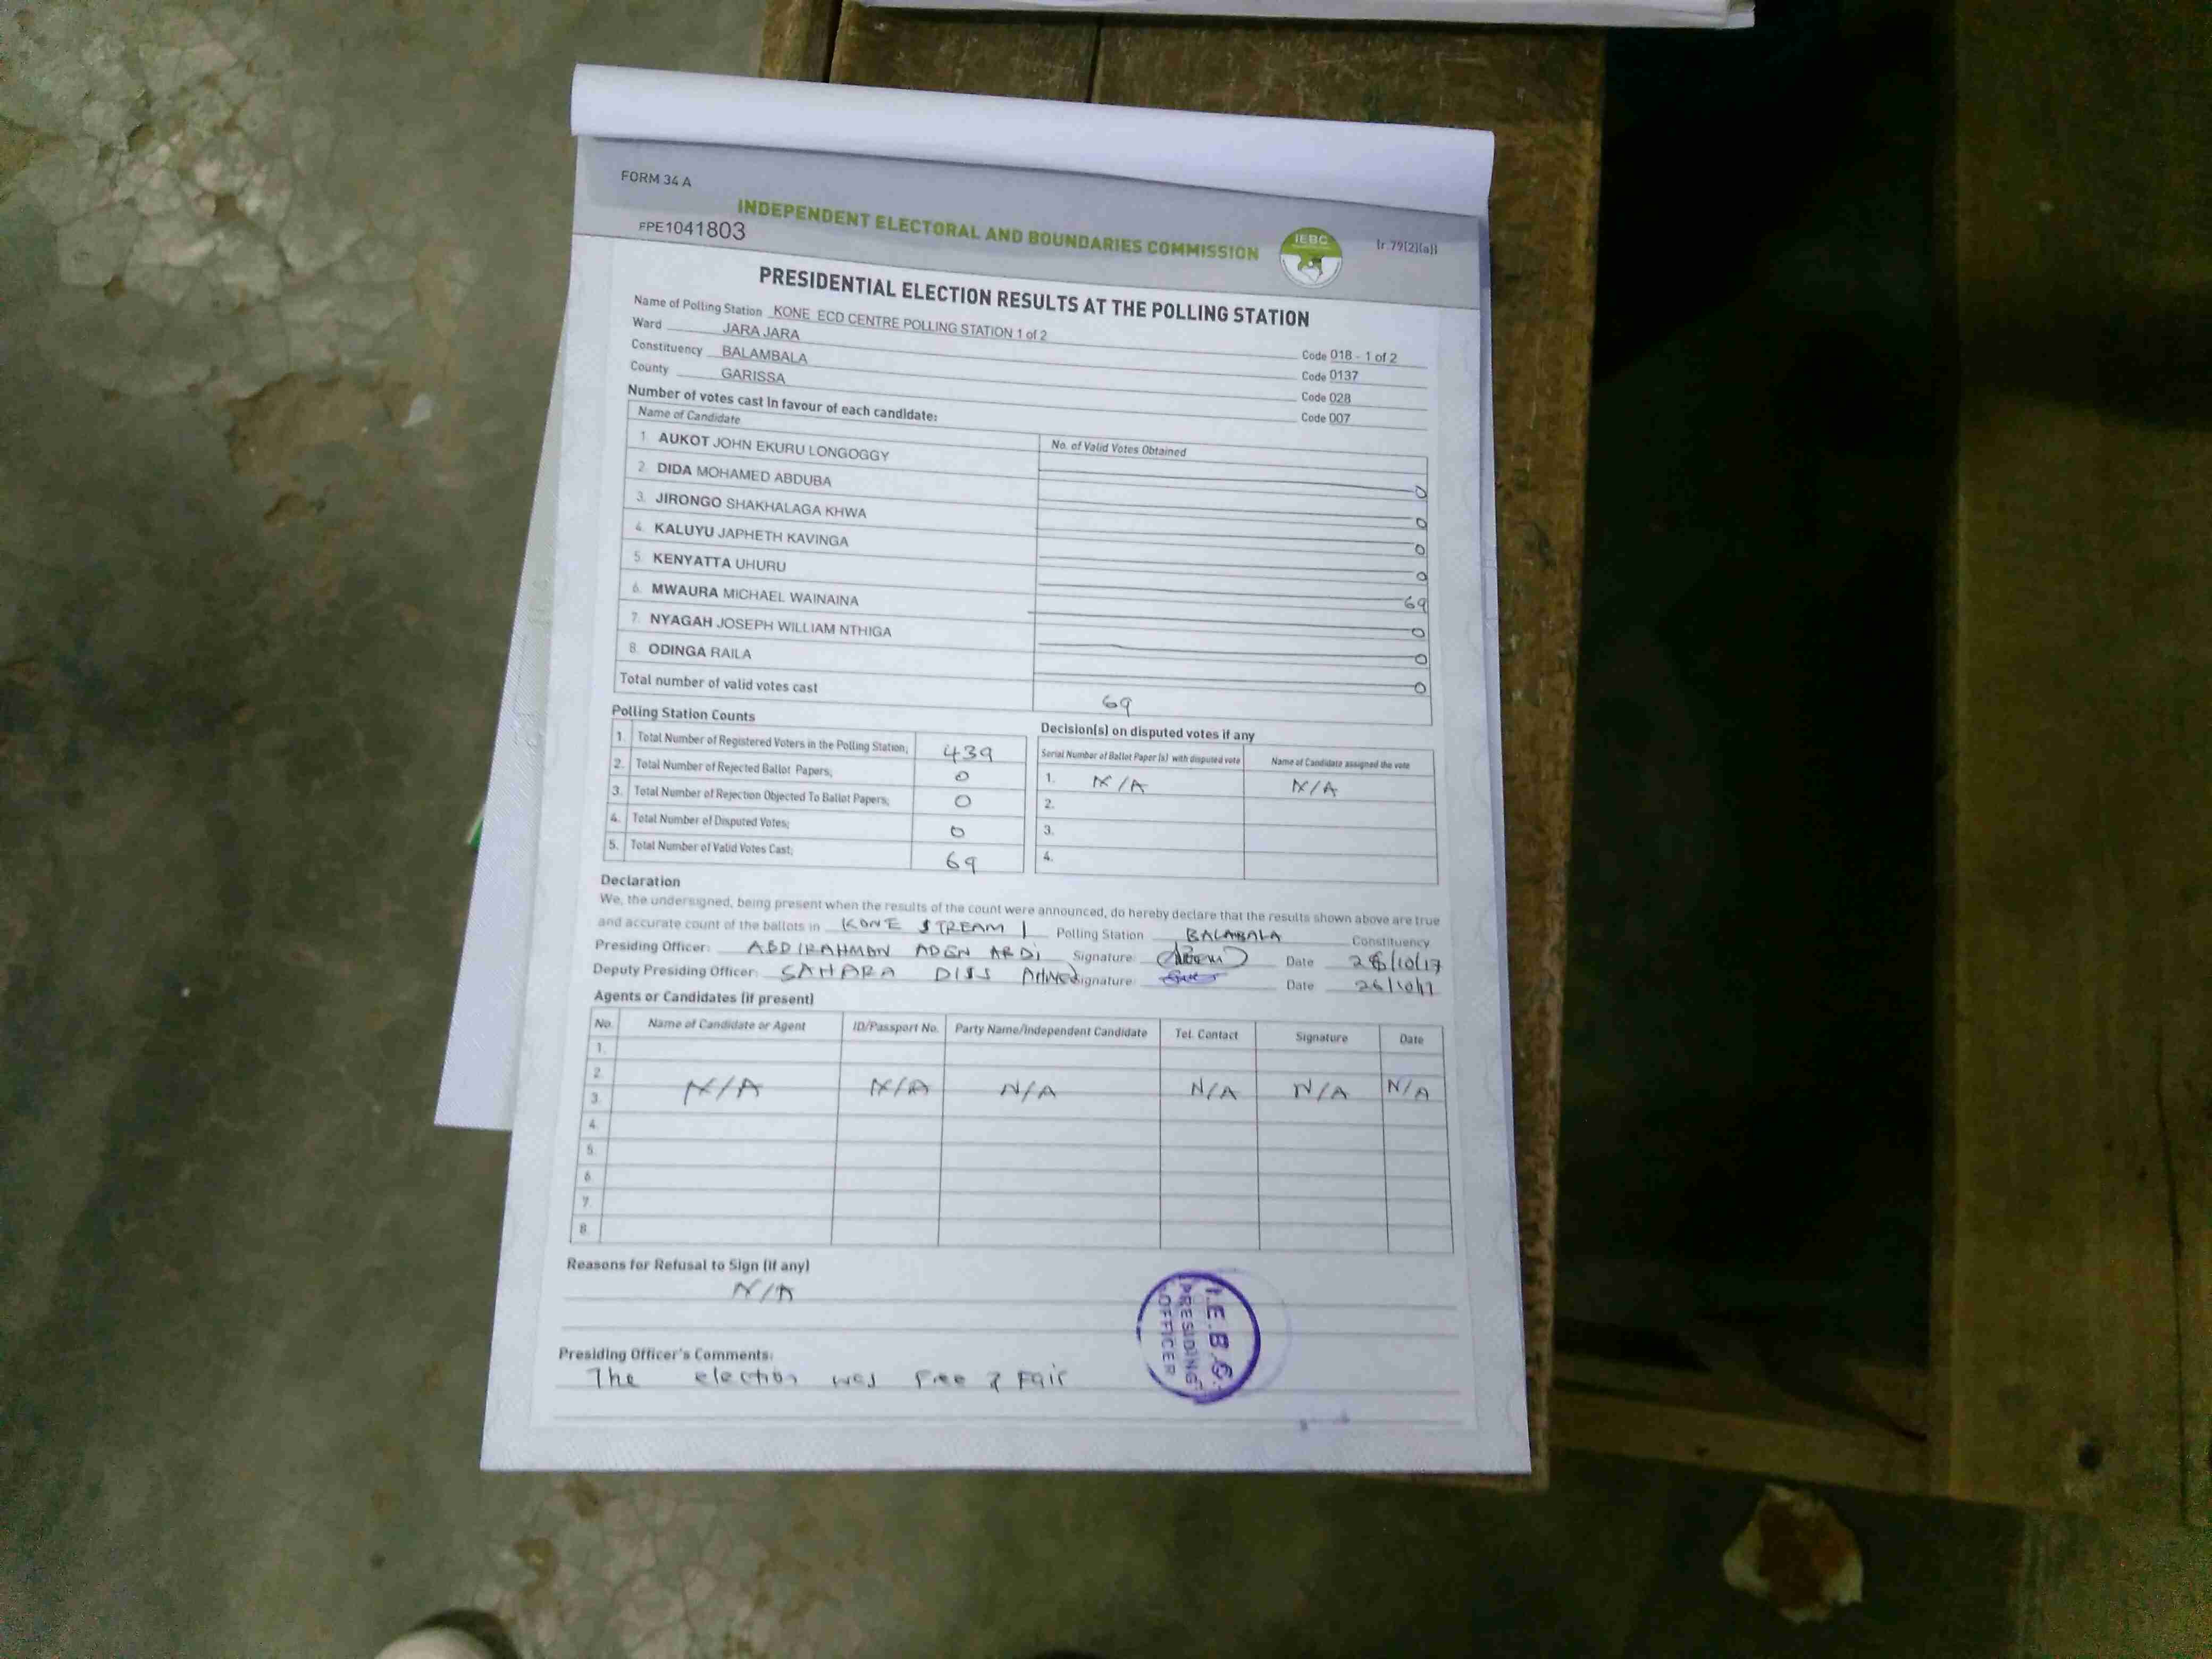 FORM 34 A
INDEPENDENT ELECTORAL AND BOUNDARIES COMMISSION
IEBC
[r.79(2)(a)]
FPE1041803
PRESIDENTIAL ELECTION RESULTS AT THE POLLING STATION
Name of Polling Station KONE ECD CENTRE POLLING STATION 1 of 2 Code 018 - 1 of 2
Ward JARA JARA Code 0137
Constituency BALAMBALA Code 028
County GARISSA Code 007
Number of votes cast in favour of each candidate:
Name of Candidate No. of Valid Votes Obtained
1. AUKOT JOHN EKURU LONGOGGY 0
2. DIDA MOHAMED ABDUBA 0
3. JIRONGO SHAKHALAGA KHWA 0
4. KALUYU JAPHETH KAVINGA 0
5. KENYATTA UHURU 69
6. MWAURA MICHAEL WAINAINA 0
7. NYAGAH JOSEPH WILLIAM NTHIGA 0
8. ODINGA RAILA 0
Total number of valid votes cast 69
Polling Station Counts
1. Total Number of Registered Voters in the Polling Station; 439
2. Total Number of Rejected Ballot Papers; 0
3. Total Number of Rejection Objected To Ballot Papers; 0
4. Total Number of Disputed Votes; 0
5. Total Number of Valid Votes Cast; 69
Decision(s) on disputed votes if any
Serial Number of Ballot Paper (s) with disputed vote Name of Candidate assigned the vote
1. N/A N/A
2.
3.
4.
Declaration
We, the undersigned, being present when the results of the count were announced, do hereby declare that the results shown above are true
and accurate count of the ballots in KONE STREAM 1 Polling Station BALAMBALA Constituency
Presiding Officer: ABDIRAHMAN ADEN ABDI Signature: Date 26/10/17
Deputy Presiding Officer: SAHARA Signature: Date 26/10/17
Agents or Candidates (if present)
No. Name of Candidate or Agent ID/Passport No. Party Name/Independent Candidate Tel. Contact Signature Date
1.
2.
3. N/A N/A N/A N/A N/A N/A
4.
5.
6.
7.
8.
Reasons for Refusal to Sign (if any)
N/A
I.E.B.C.
PRESIDING
OFFICER
Presiding Officer's Comments:
The election was Free & Fair